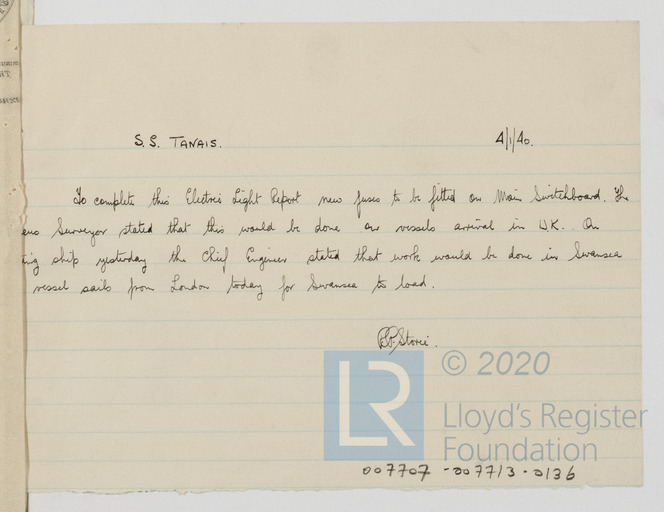 S.S. TANAIS. 4/1/40.
To complete this Electric Light Report new fuses to be fitted on Main Switchboard. The
Surveyor stated that this would be done on vessels arrival in UK. On
ting ship yesterday the Chief Engineer stated that work would be done in Swansea
vessel sails from London today for Swansea to load.
Storie.
LR
© 2020
Lloyd's Register
Foundation
007707-007713-0136